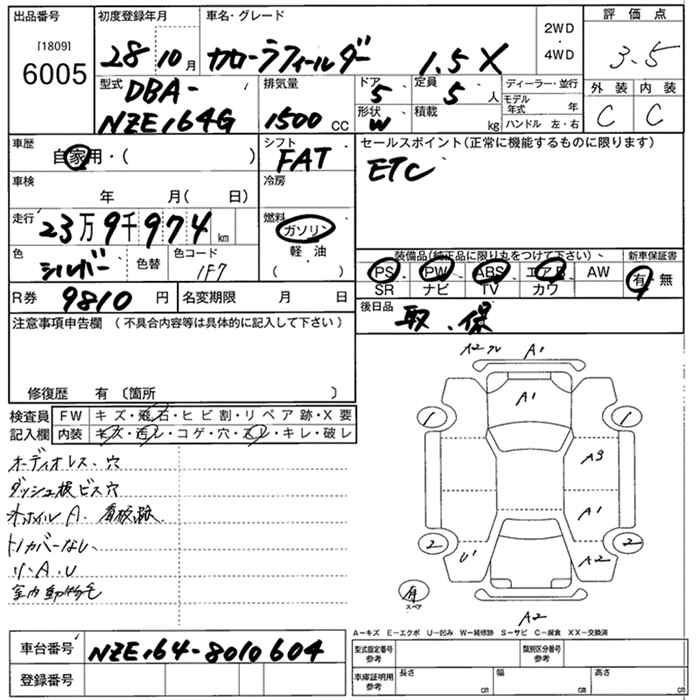 出品番号
[1809]
6005
初度登録年月
28 10月
車名・グレード
カローラフィールダー 1.5X
2WD
・
4WD
評価点
3.5
外装 内装
C C
型式
DBA-
NZE164G
排気量
1500 cc
ドア 5
定員 5 人
形状 W
積載 kg
ディーラー・並行
モデル年式 年
ハンドル 左・右
車歴
自家用・( )
シフト
FAT
セールスポイント(正常に機能するものに限ります)
ETC
車検
年 月( 日)
冷房
走行
23万9千974 km
燃料
ガソリン
軽油
( )
色
シルバー
色替
色コード
1F7
装備品(純正品に限り丸をつけて下さい)
PS PW ABS エアB AW
SR ナビ TV カワ
新車保証書
有・無
R券 9810 円
名変期限 月 日
後日品
取.保
注意事項申告欄 (不具合内容等は具体的に記入して下さい)
修復歴 有 〔箇所 〕
検査員
記入欄
FW キズ・飛石・ヒビ割・リペア跡・X要
内装 キズ・汚レ・コゲ・穴・スレ・キレ・破レ
オーディオレス、穴
ダッシュ板ビス穴
ホイルA. 看板跡
トノカバーなし
リ.A.U
室内動物毛
A2 A1
A1
1 1
A3
A1
2 2
U1 A2
有
スペア
A2
A-キズ E-エクボ U-凹み W-補修跡 S-サビ C-腐食 XX-交換済
車台番号 NZE164-8010604
登録番号
型式指定番号
参考
類別区分番号
参考
車庫証明用
参考
長さ cm
幅 cm
高さ cm